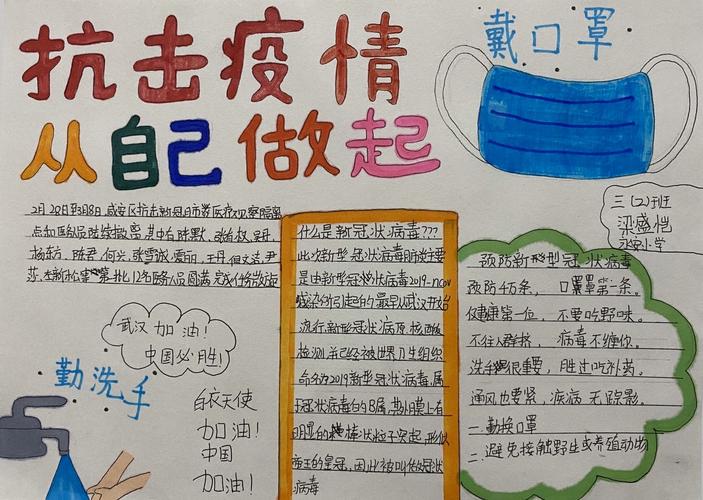 抗击疫情
从自己做起
戴口罩
三(2)班
梁盛恺
永安小学
2月20日至3月8日,咸安区抗击新冠
点和医务人员陆续撤离,其中有陈默、张
杨东方、陈君、何兴、张雪诚、
12名医务人员圆满完成任务
武汉加油!
中国必胜!
勤洗手
白衣天使
加油!
中国
加油!
什么是新冠状病毒???
此次新型冠状病毒肺炎主要
是由新型冠状病毒2019-ncov
感染所引起的最早从武汉开始
流行新型冠状病原核酸
检测,并已经被世界卫生组织
命名为2019新型冠状病毒,属
于冠状病毒的B属,其外膜上有
明显的棒状粒子突起,形似
帝王的皇冠,因此被叫做冠状
病毒
预防新型冠状病毒
预防4万条,口罩第一条。
健康第一位,不要吃野味。
不往人群挤,病毒不缠你。
洗手很重要,胜过吃补药。
通风也要紧,疾病无踪影。
一.勤换口罩
二.避免接触野生或养殖动物